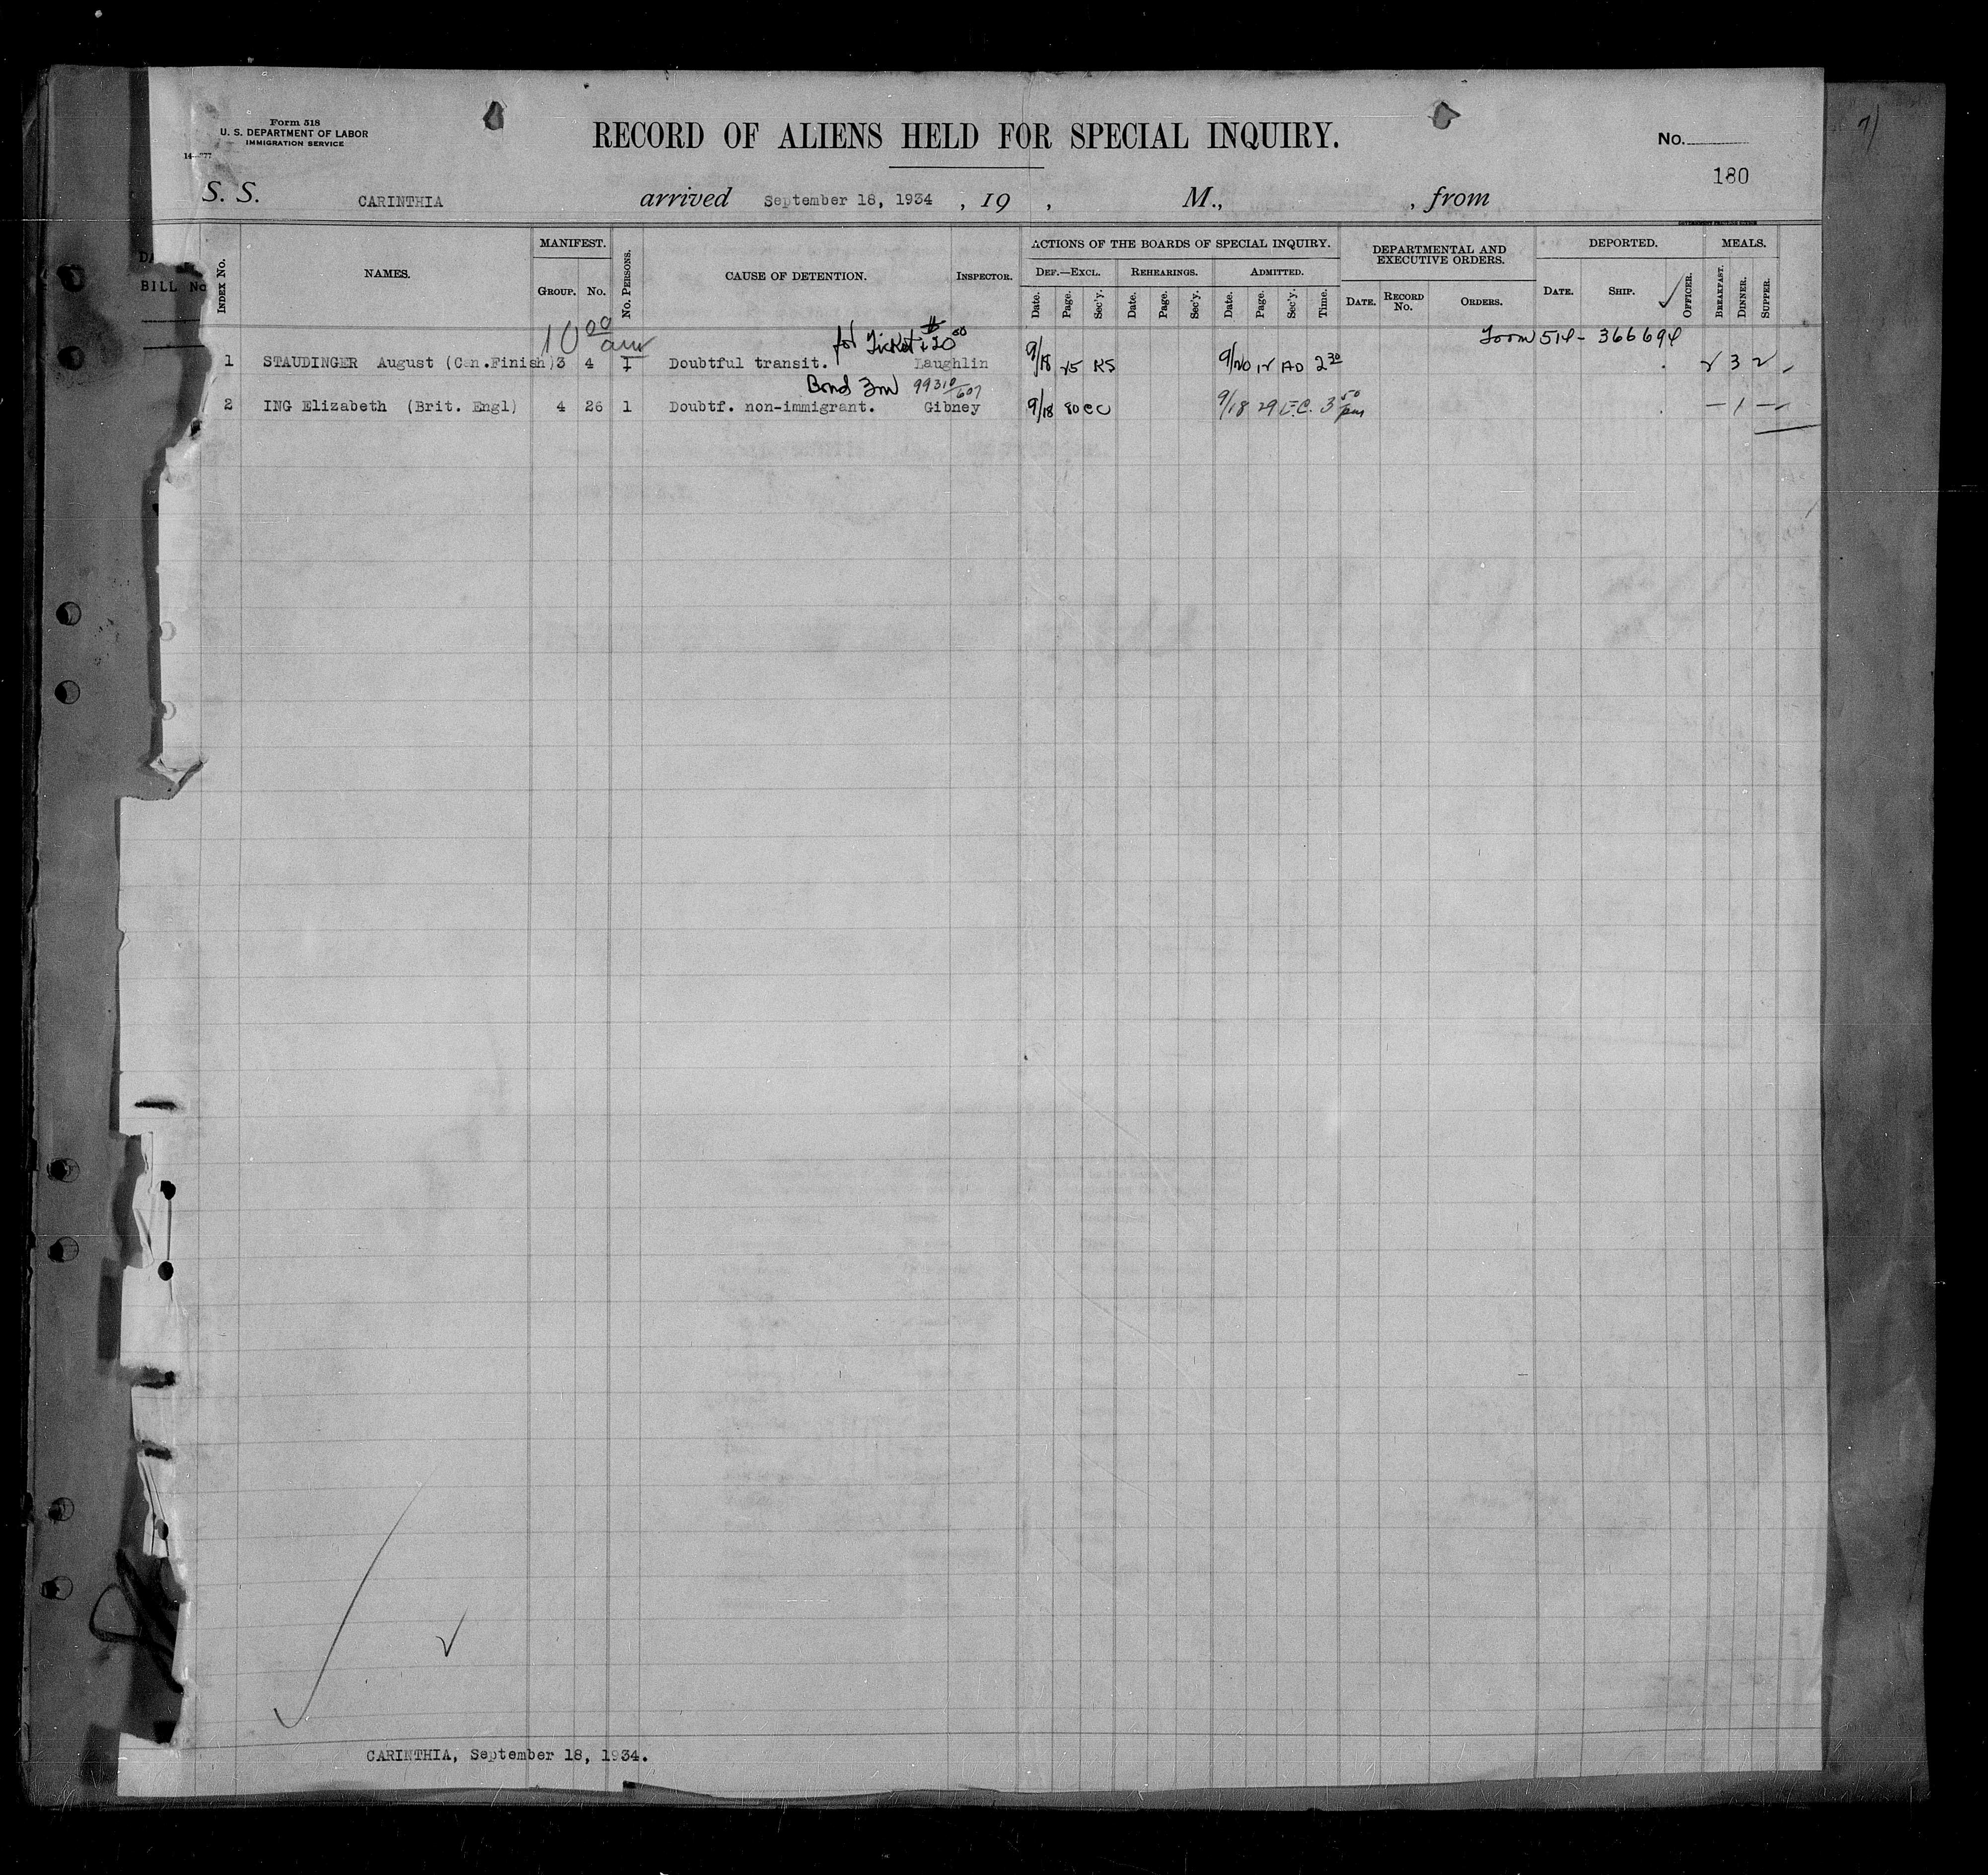 Form 518
U. S. DEPARTMENT OF LABOR
IMMIGRATION SERVICE
RECORD OF ALIENS HELD FOR SPECIAL INQUIRY.
No.
180
S. S. CARINTHIA arrived September 18, 1934, 19 , M., , from
BILL No
INDEX No.
NAMES.
MANIFEST.
GROUP. No.
No. PERSONS.
CAUSE OF DETENTION.
INSPECTOR.
ACTIONS OF THE BOARDS OF SPECIAL INQUIRY.
DEF.—EXCL. REHEARINGS. ADMITTED.
Date. Page. Sec'y. Date. Page. Sec'y. Date. Page. Sec'y. Time.
DEPARTMENTAL AND
EXECUTIVE ORDERS.
DATE. RECORD No. ORDERS.
DEPORTED.
DATE. SHIP. OFFICER.
MEALS.
BREAKFAST. DINNER. SUPPER.
10 00 am for Ticket + $20 00 Form 514 - 366694
1 STAUDINGER August (Can.Finish) 3 4 1 Doubtful transit. Laughlin 9/18 25 KS 9/20 12 AD 2 30 2 3 2
Bond 3m 99310/607
2 ING Elizabeth (Brit. Engl) 4 26 1 Doubtf. non-immigrant. Gibney 9/18 80 CC 9/18 29 E.C. 3 50 pm — 1 —
CARINTHIA, September 18, 1934.